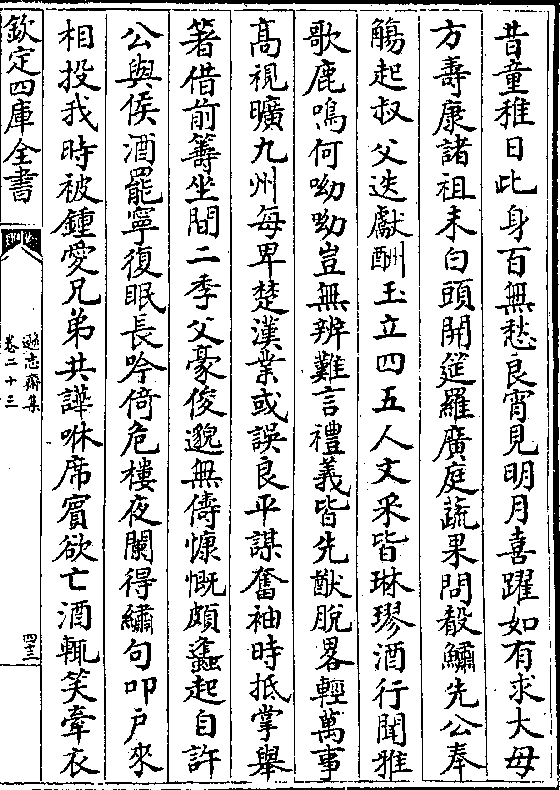 昔童稚日此身百無愁良宵見明月喜躍如有求大母
方壽康諸祖未白頭開筵羅廣庭蔬果問殽鱐先公奉
觴起叔父迭獻酬玉立四五人文采皆琳璆酒行聞雅
歌鹿鳴何呦呦豈無辨難言禮義皆先猷脫畧輕萬事
高視曠九州每卑楚漢業或誤良平謀奮袖時抵掌舉
箸借前籌坐間二季父豪俊邈無儔慷慨頗蠭起自許
公與侯酒罷寧復眠長吟倚危樓夜闌得繡句叩户來
相投我時被鍾愛兄弟共譁咻席賓欲亡酒輒笑牽衣
欽定四庫全書
遜志齋集
卷二十三
四三